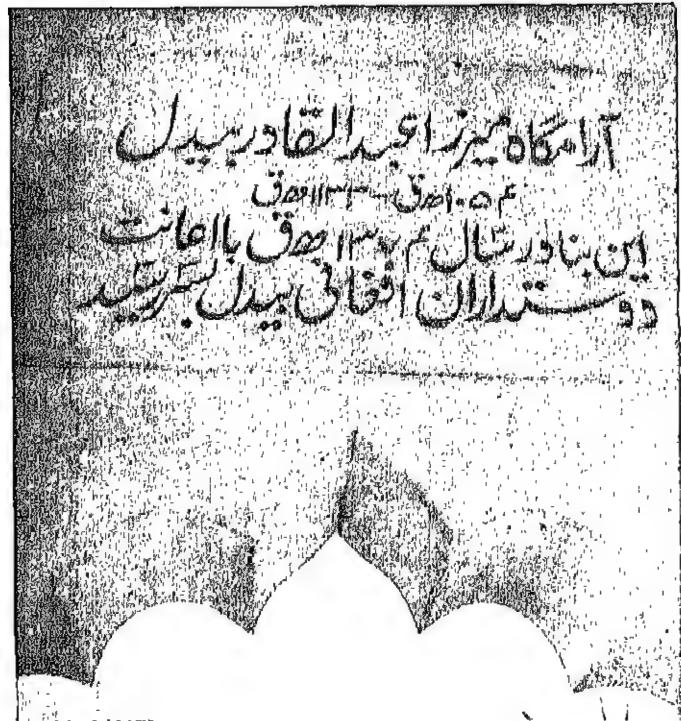 آرامگاه میرزا عبدالقادر بیدل
۱۰۵۴ھق — ۱۱۳۳ھق
این بنا در سال ۱۳۷۴ھق با اعانت
دوستداران افغانی بیدل بسر رسید